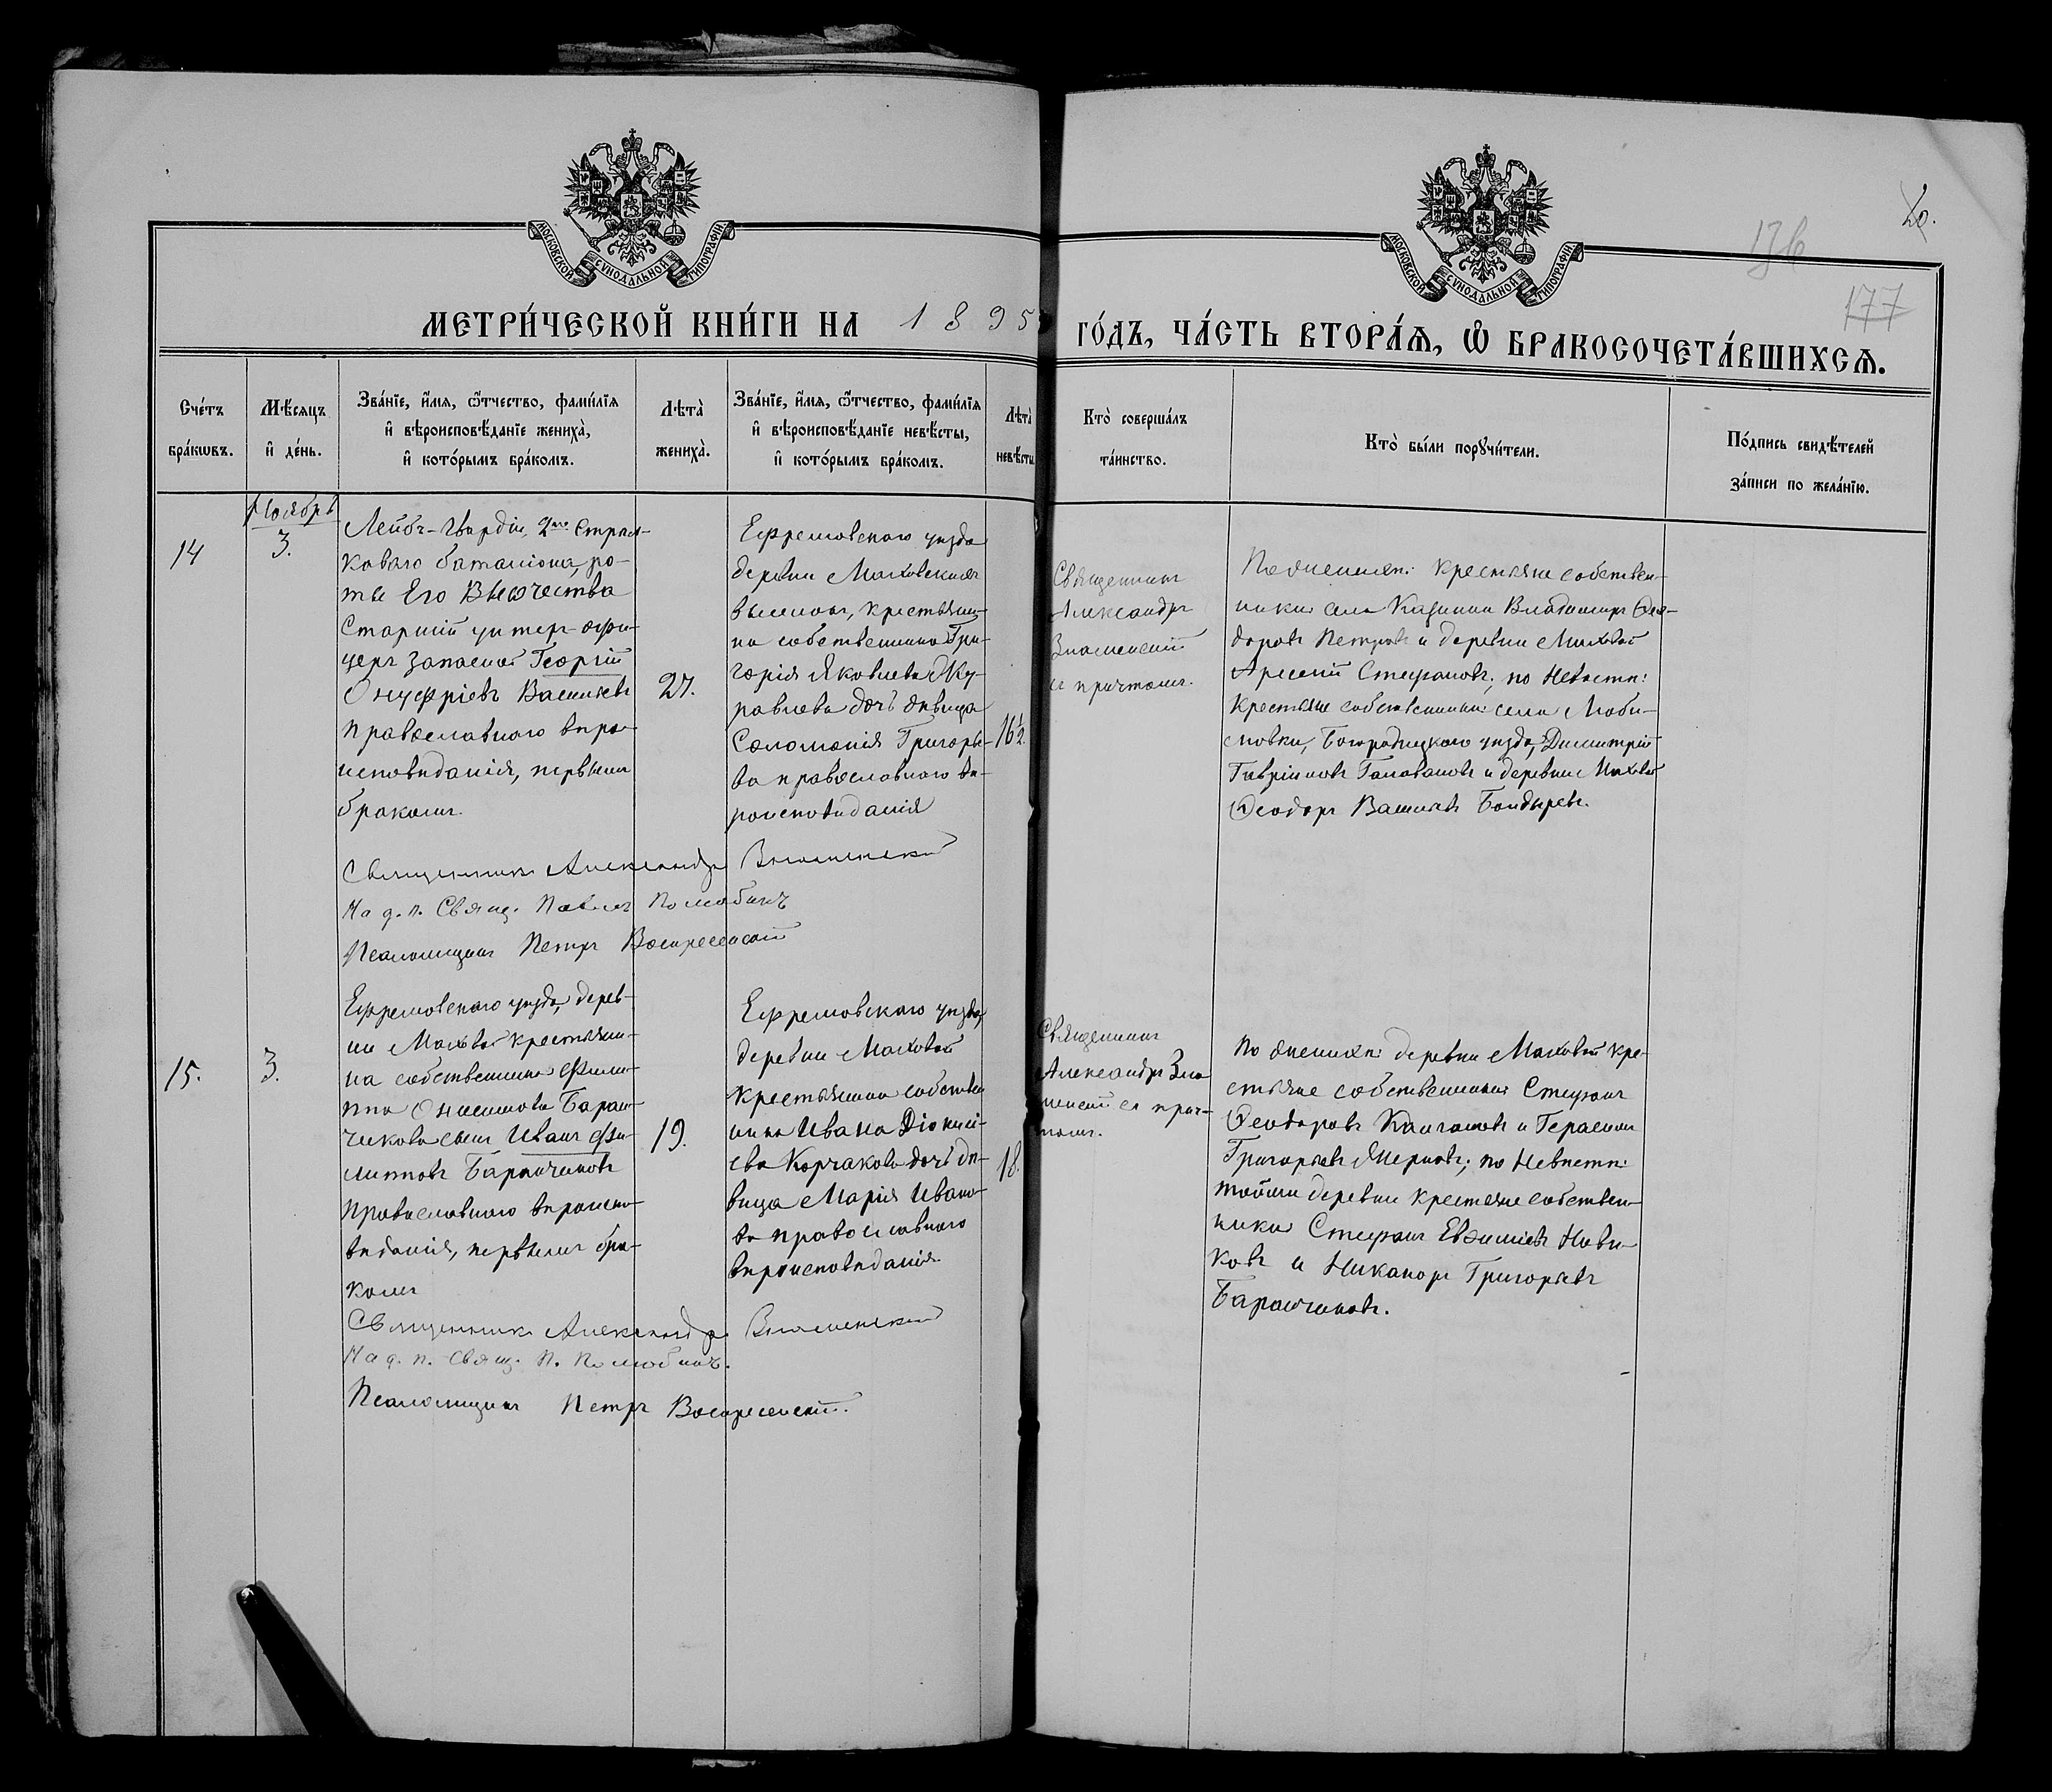 20.
136
177
МОСКОВСКОЙ СѴНОДАЛЬНОЙ ТИПОГРАФІИ
МОСКОВСКОЙ СѴНОДАЛЬНОЙ ТИПОГРАФІИ
МЕТРИ́ЧЕСКОЙ КНИ́ГИ НА 1895
ГО́ДЪ, ЧА́СТЬ ВТОРА́Ѧ, Ѽ БРАКОСОЧЕТА́ВШИХСѦ.
Сче́тъ
бра́кѡвъ.
Мѣ́сяцъ
и҆ де́нь.
Зва́нїе, и҆́мѧ, ѻ҆́тчество, фами́лїѧ
и҆ вѣроисповѣ́данїе жениха̀,
и҆ кото́рымъ бра́комъ.
Лѣта̀
жениха̀.
Зва́нїе, и҆́мѧ, ѻ҆́тчество, фами́лїѧ
и҆ вѣроисповѣ́данїе невѣ́сты,
и҆ кото́рымъ бра́комъ.
Лѣта̀
невѣ́сты
Кто̀ соверша́лъ
та́инство.
Кто̀ бы́ли порꙋчи́тели.
По́дпись свидѣ́телей
за́писи по жела́нїю.
14
Ноябрь
3.
Лейбъ-Гвардіи 2го Стрѣл-
коваго баталіона, ро-
ты Его Высочества
Старшій унтеръ-офи-
церъ запасной Георгій
Онуфріевъ Васильевъ
православнаго вѣро-
исповѣданія, первымъ
бракомъ.
27.
Ефремовскаго уѣзда
деревни Маховскихъ
выселокъ, крестьяни-
на собственника Гри-
горія Яковлева Жу-
равлева дочь дѣвица
Соломонія Григорье-
ва православнаго вѣ-
роисповѣданія
16½.
Священникъ
Александръ
Знаменскій
съ причтомъ.
По женихѣ: крестьяне собствен-
ники села Владиміръ Ѳео-
доровъ Петровъ и деревни Маховой
Арсеній Стефановъ; по невѣстѣ:
крестьяне собственники села Люби-
мовки, Богородицкаго уѣзда, Димитрій
Гавріиловъ Головановъ и деревни Маховой
Ѳеодоръ Васильевъ Бондыревъ.
Священникъ Александръ Знаменскій
На д. п. Свящ. Павелъ Поллюбинъ
Псаломщикъ Петръ Воскресенскій
15.
3.
Ефремовскаго уѣзда, дерев-
ни Маховой крестьяни-
на собственника Фили-
ппа Онисимова Баран-
чикова сынъ Иванъ Фи-
липповъ Баранчиковъ
православнаго вѣроиспо-
вѣданія, первымъ бра-
комъ
19.
Ефремовскаго уѣзда,
деревни Маховой
крестьянина собствен
ника Ивана Діонисі-
ева Корчакова дочь дѣ-
вица Марія Ивано-
ва православнаго
вѣроисповѣданія.
18.
Священникъ
Александръ Зна
менскій съ прич-
томъ.
По женихѣ: деревни Маховой кре-
стьяне собственники Стефанъ
Ѳеодоровъ и Герасимъ
Григорьевъ; по невѣстѣ:
тойже деревни крестьяне собствен-
ники Стефанъ Евѳиміевъ Нови-
ковъ и Никаноръ Григорьевъ
Баранчиковъ.
Священникъ Александръ Знаменскій
На д. п. Свящ. П. Поллюбинъ.
Псаломщикъ Петръ Воскресенскій.